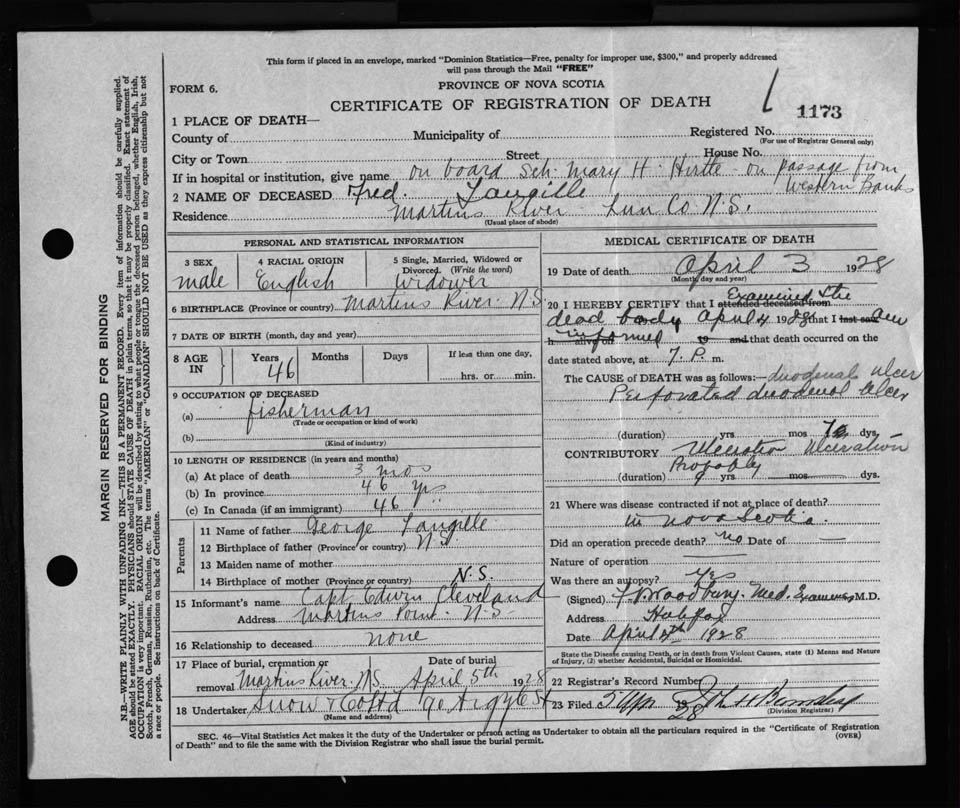 This form if placed in an envelope, marked "Dominion Statistics—Free, penalty for improper use, $300," and properly addressed
will pass through the Mail "FREE"
FORM 6.
PROVINCE OF NOVA SCOTIA
CERTIFICATE OF REGISTRATION OF DEATH
1173
1 PLACE OF DEATH—
County of Municipality of Registered No.
(For use of Registrar General only)
City or Town Street House No.
If in hospital or institution, give name on board Sch. Mary H. Hirtle - on passage from
Western Banks
2 NAME OF DECEASED Fred Langille
Residence Martins River Lun Co N.S.
(Usual place of abode)
PERSONAL AND STATISTICAL INFORMATION
3 SEX
male
4 RACIAL ORIGIN
English
5 Single, Married, Widowed or
Divorced. (Write the word)
Widower
6 BIRTHPLACE (Province or country) Martins River N.S.
7 DATE OF BIRTH (month, day and year)
8 AGE
IN
Years
46
Months
Days
If less than one day,
hrs. or min.
9 OCCUPATION OF DECEASED
(a) fisherman
(Trade or occupation or kind of work)
(b)
(Kind of industry)
10 LENGTH OF RESIDENCE (in years and months)
(a) At place of death 3 mos
(b) In province 46 yrs
(c) In Canada (if an immigrant) 46
Parents
11 Name of father George Langille
12 Birthplace of father (Province or country) N.S.
13 Maiden name of mother
14 Birthplace of mother (Province or country) N.S.
15 Informant's name Capt Edwin Cleveland
Address Martins Point N.S
16 Relationship to deceased none
17 Place of burial, cremation or
removal Martins River N.S.
Date of burial
April 5th 1928
18 Undertaker Snow & Co Ltd 90 Argyle St
(Name and address)
MEDICAL CERTIFICATE OF DEATH
19 Date of death April 3 1928
(Month, day and year)
20 I HEREBY CERTIFY that I attended deceased from Examined the
dead body April 4 1928 that I last saw am
h alive on informed 19 and that death occurred on the
date stated above, at 7. P. m.
The CAUSE of DEATH was as follows:— duodenal ulcer
Perforated duodenal ulcer
(duration) yrs mos dys.
CONTRIBUTORY Ulceration Ulceration
Probably
(duration) yrs. mos. dys.
21 Where was disease contracted if not at place of death?
in Nova Scotia.
Did an operation precede death? no Date of —
Nature of operation —
Was there an autopsy? Yes
(Signed) Woodbury. Med. Examiner M.D.
Address Halifax
Date April 4th 1928
State the Disease causing Death, or in death from Violent Causes, state (1) Means and Nature
of Injury, (2) whether Accidental, Suicidal or Homicidal.
22 Registrar's Record Number
23 Filed 5 Apr 28
(Division Registrar)
SEC. 46—Vital Statistics Act makes it the duty of the Undertaker or person acting as Undertaker to obtain all the particulars required in the "Certificate of Registration
of Death" and to file the same with the Division Registrar who shall issue the burial permit.
(OVER)
MARGIN RESERVED FOR BINDING
N.B.—WRITE PLAINLY WITH UNFADING INK—THIS IS A PERMANENT RECORD. Every item of information should be carefully supplied.
AGE should be stated EXACTLY. PHYSICIANS should STATE CAUSE OF DEATH in plain terms, so that it may be properly classified. Exact statement of
OCCUPATION is very important. RACIAL ORIGIN will be described by stating to what people or tongue the deceased person belonged, whether English, Irish,
Scotch, French, German, Russian, Ruthenian, etc. The terms "AMERICAN" or "CANADIAN" SHOULD NOT BE USED as they express citizenship but not
a race or people. See instructions on back of Certificate.